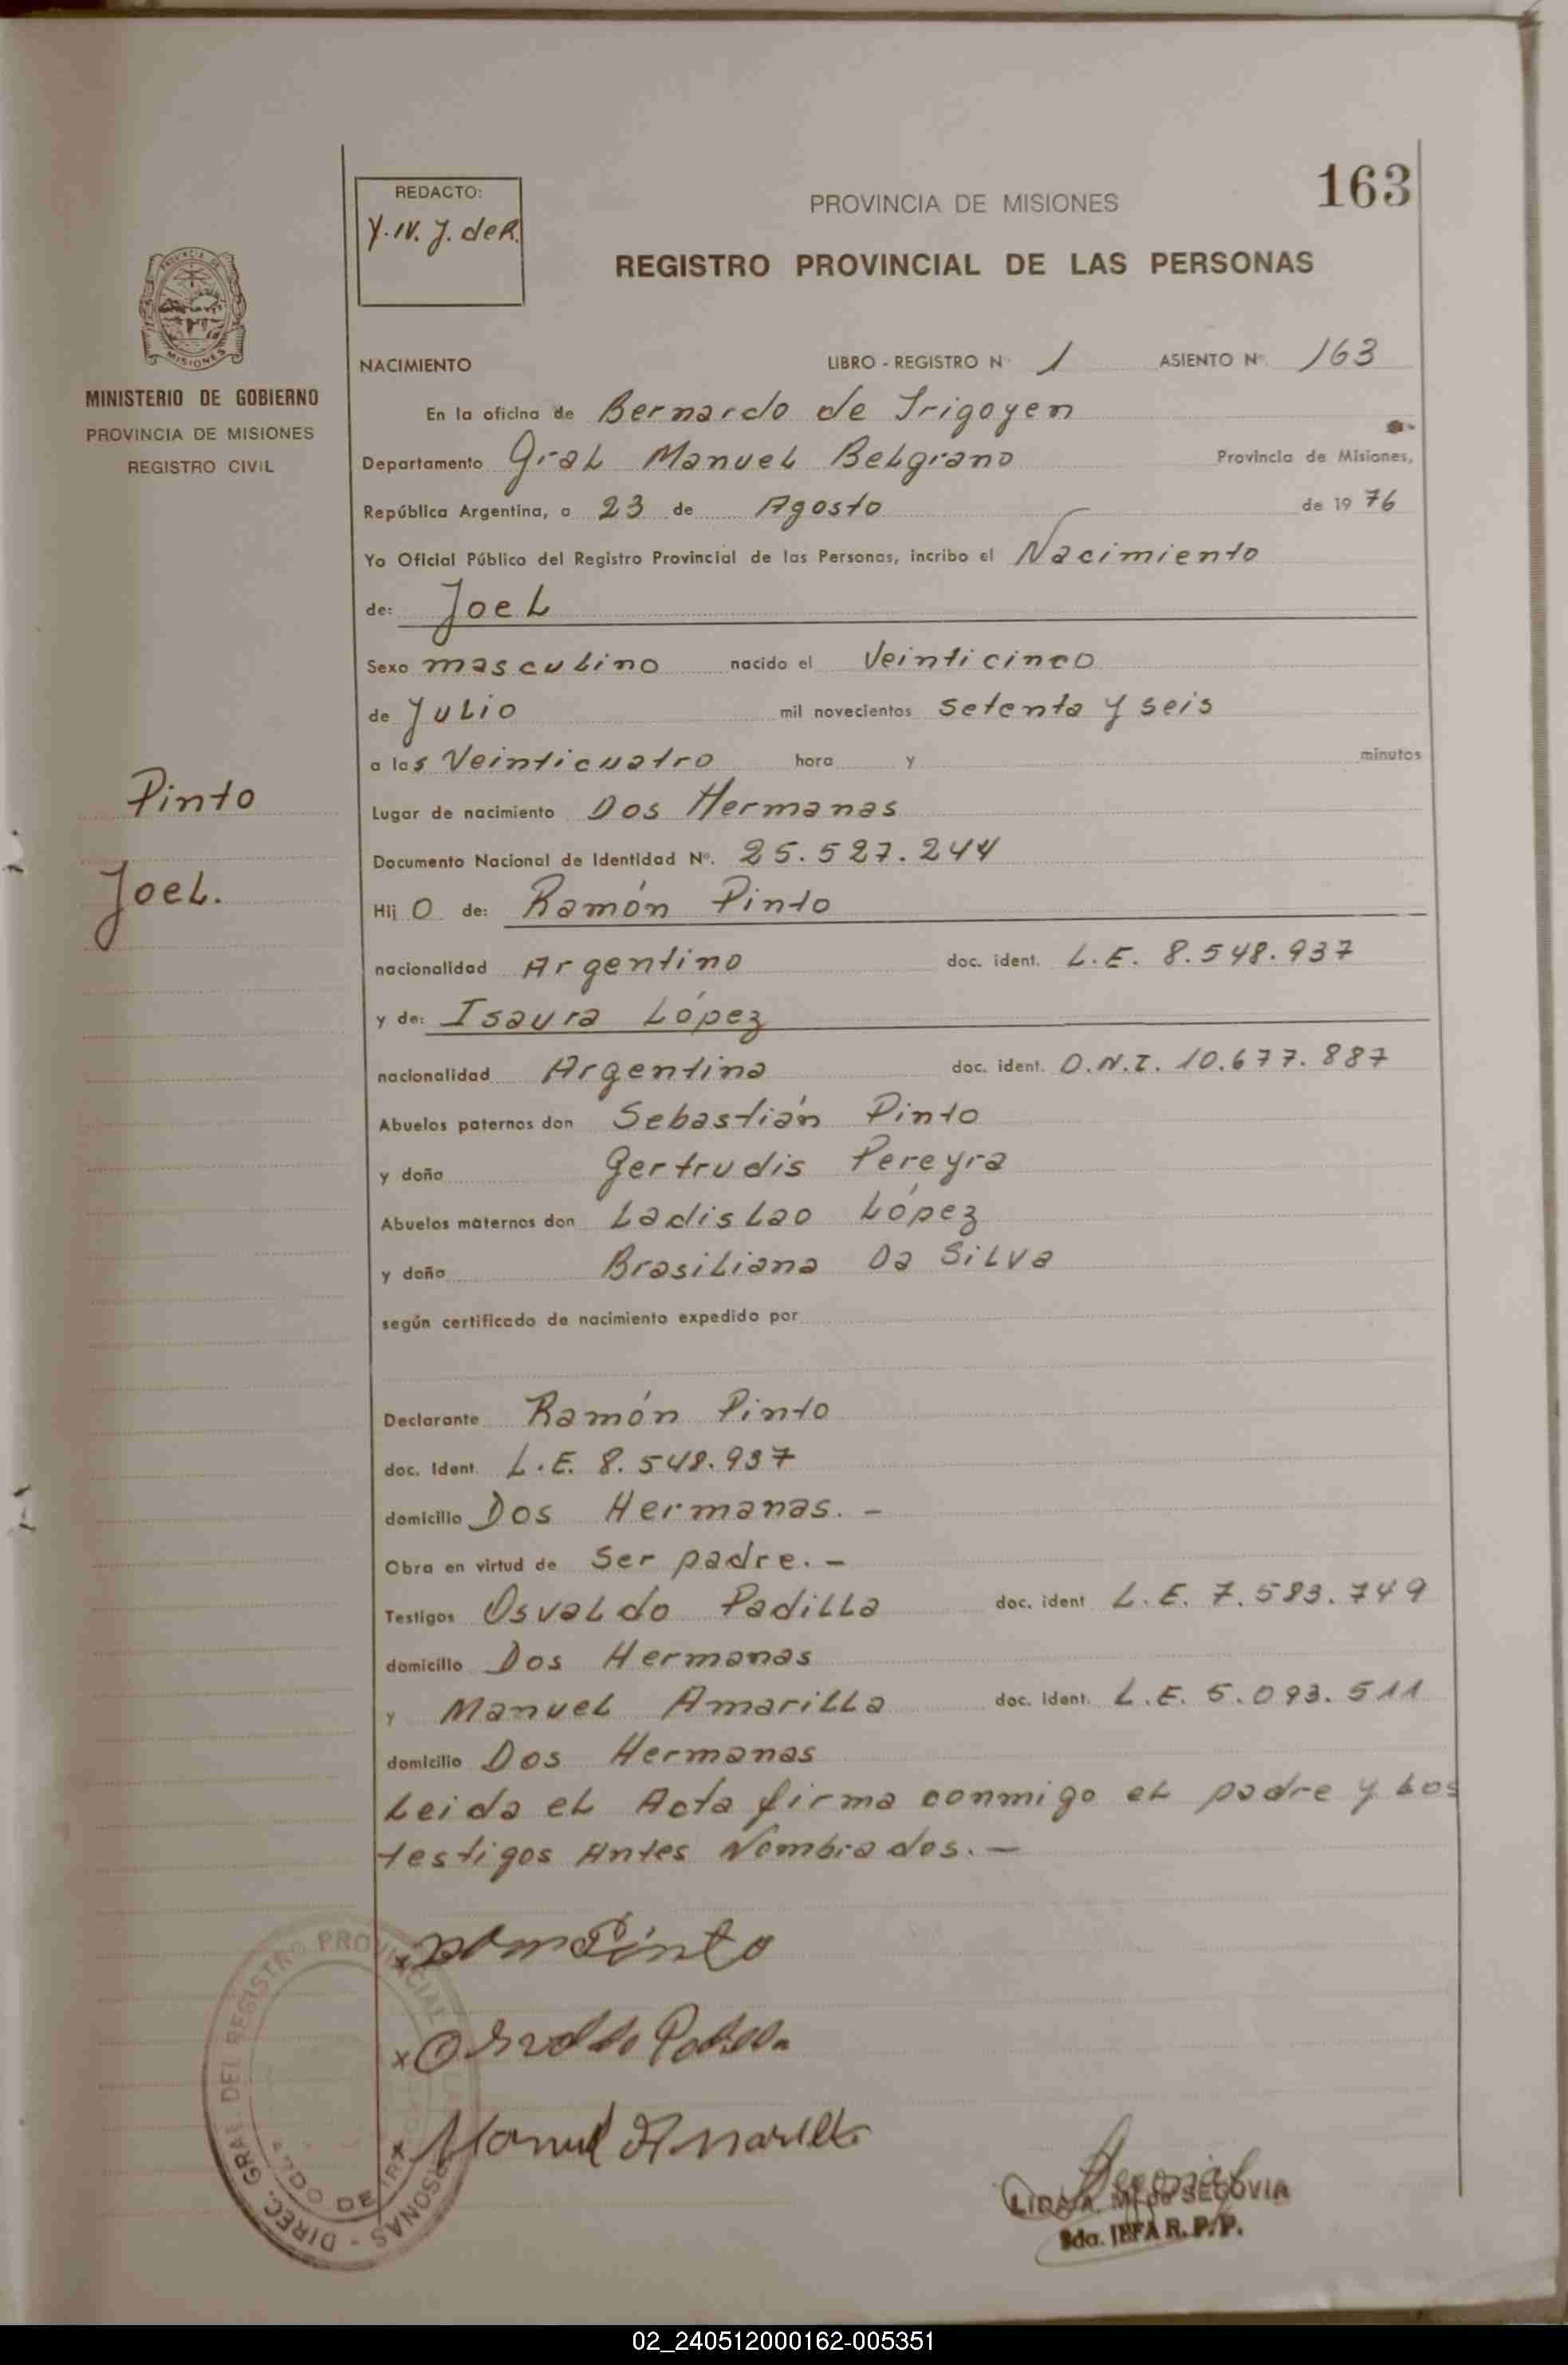 163
REDACTO:
PROVINCIA DE MISIONES
REGISTRO PROVINCIAL DE LAS PERSONAS
MISIONES
MINISTERIO DE GOBIERNO
PROVINCIA DE MISIONES
REGISTRO CIVIL
NACIMIENTO LIBRO - REGISTRO N° 1 ASIENTO N° 163
En la oficina de Bernardo de Irigoyen
Departamento Gral Manuel Belgrano Provincia de Misiones,
República Argentina, a 23 de Agosto de 1976
Yo Oficial Público del Registro Provincial de las Personas, incribo el Nacimiento
de: Joel
Sexo masculino nacido el Veinticinco
de Julio mil novecientos setenta y seis
a las Veinticuatro hora y minutos
Pinto
Lugar de nacimiento Dos Hermanas
Documento Nacional de Identidad N°. 25.527.244
Joel.
Hij o de: Ramón Pinto
nacionalidad Argentino doc. ident. L.E. 8.548.937
y de: Isaura López
nacionalidad Argentina doc. ident. D.N.I. 10.677.887
Abuelos paternos don Sebastián Pinto
y doña Gertrudis Pereyra
Abuelos maternos don Ladislao López
y doña Brasiliana Da Silva
según certificado de nacimiento expedido por
Declarante Ramón Pinto
doc. Ident. L.E. 8.548.937
domicilio Dos Hermanas. -
Obra en virtud de Ser padre. -
Testigos Osvaldo Padilla doc. ident L.E. 7.583.749
domicilio Dos Hermanas
y Manuel Amarilla doc. ident. L.E. 5.093.511
domicilio Dos Hermanas
Leida el Acta firma conmigo el padre y los
testigos Antes Nombrados. -
Pinto
Osvaldo Padilla
Manuel Amarilla
DIREC. GRAL. DEL REGISTRO PROVINCIAL PERSONAS
M. de SEGOVIA
JEFA R.P.P.
02_240512000162-005351